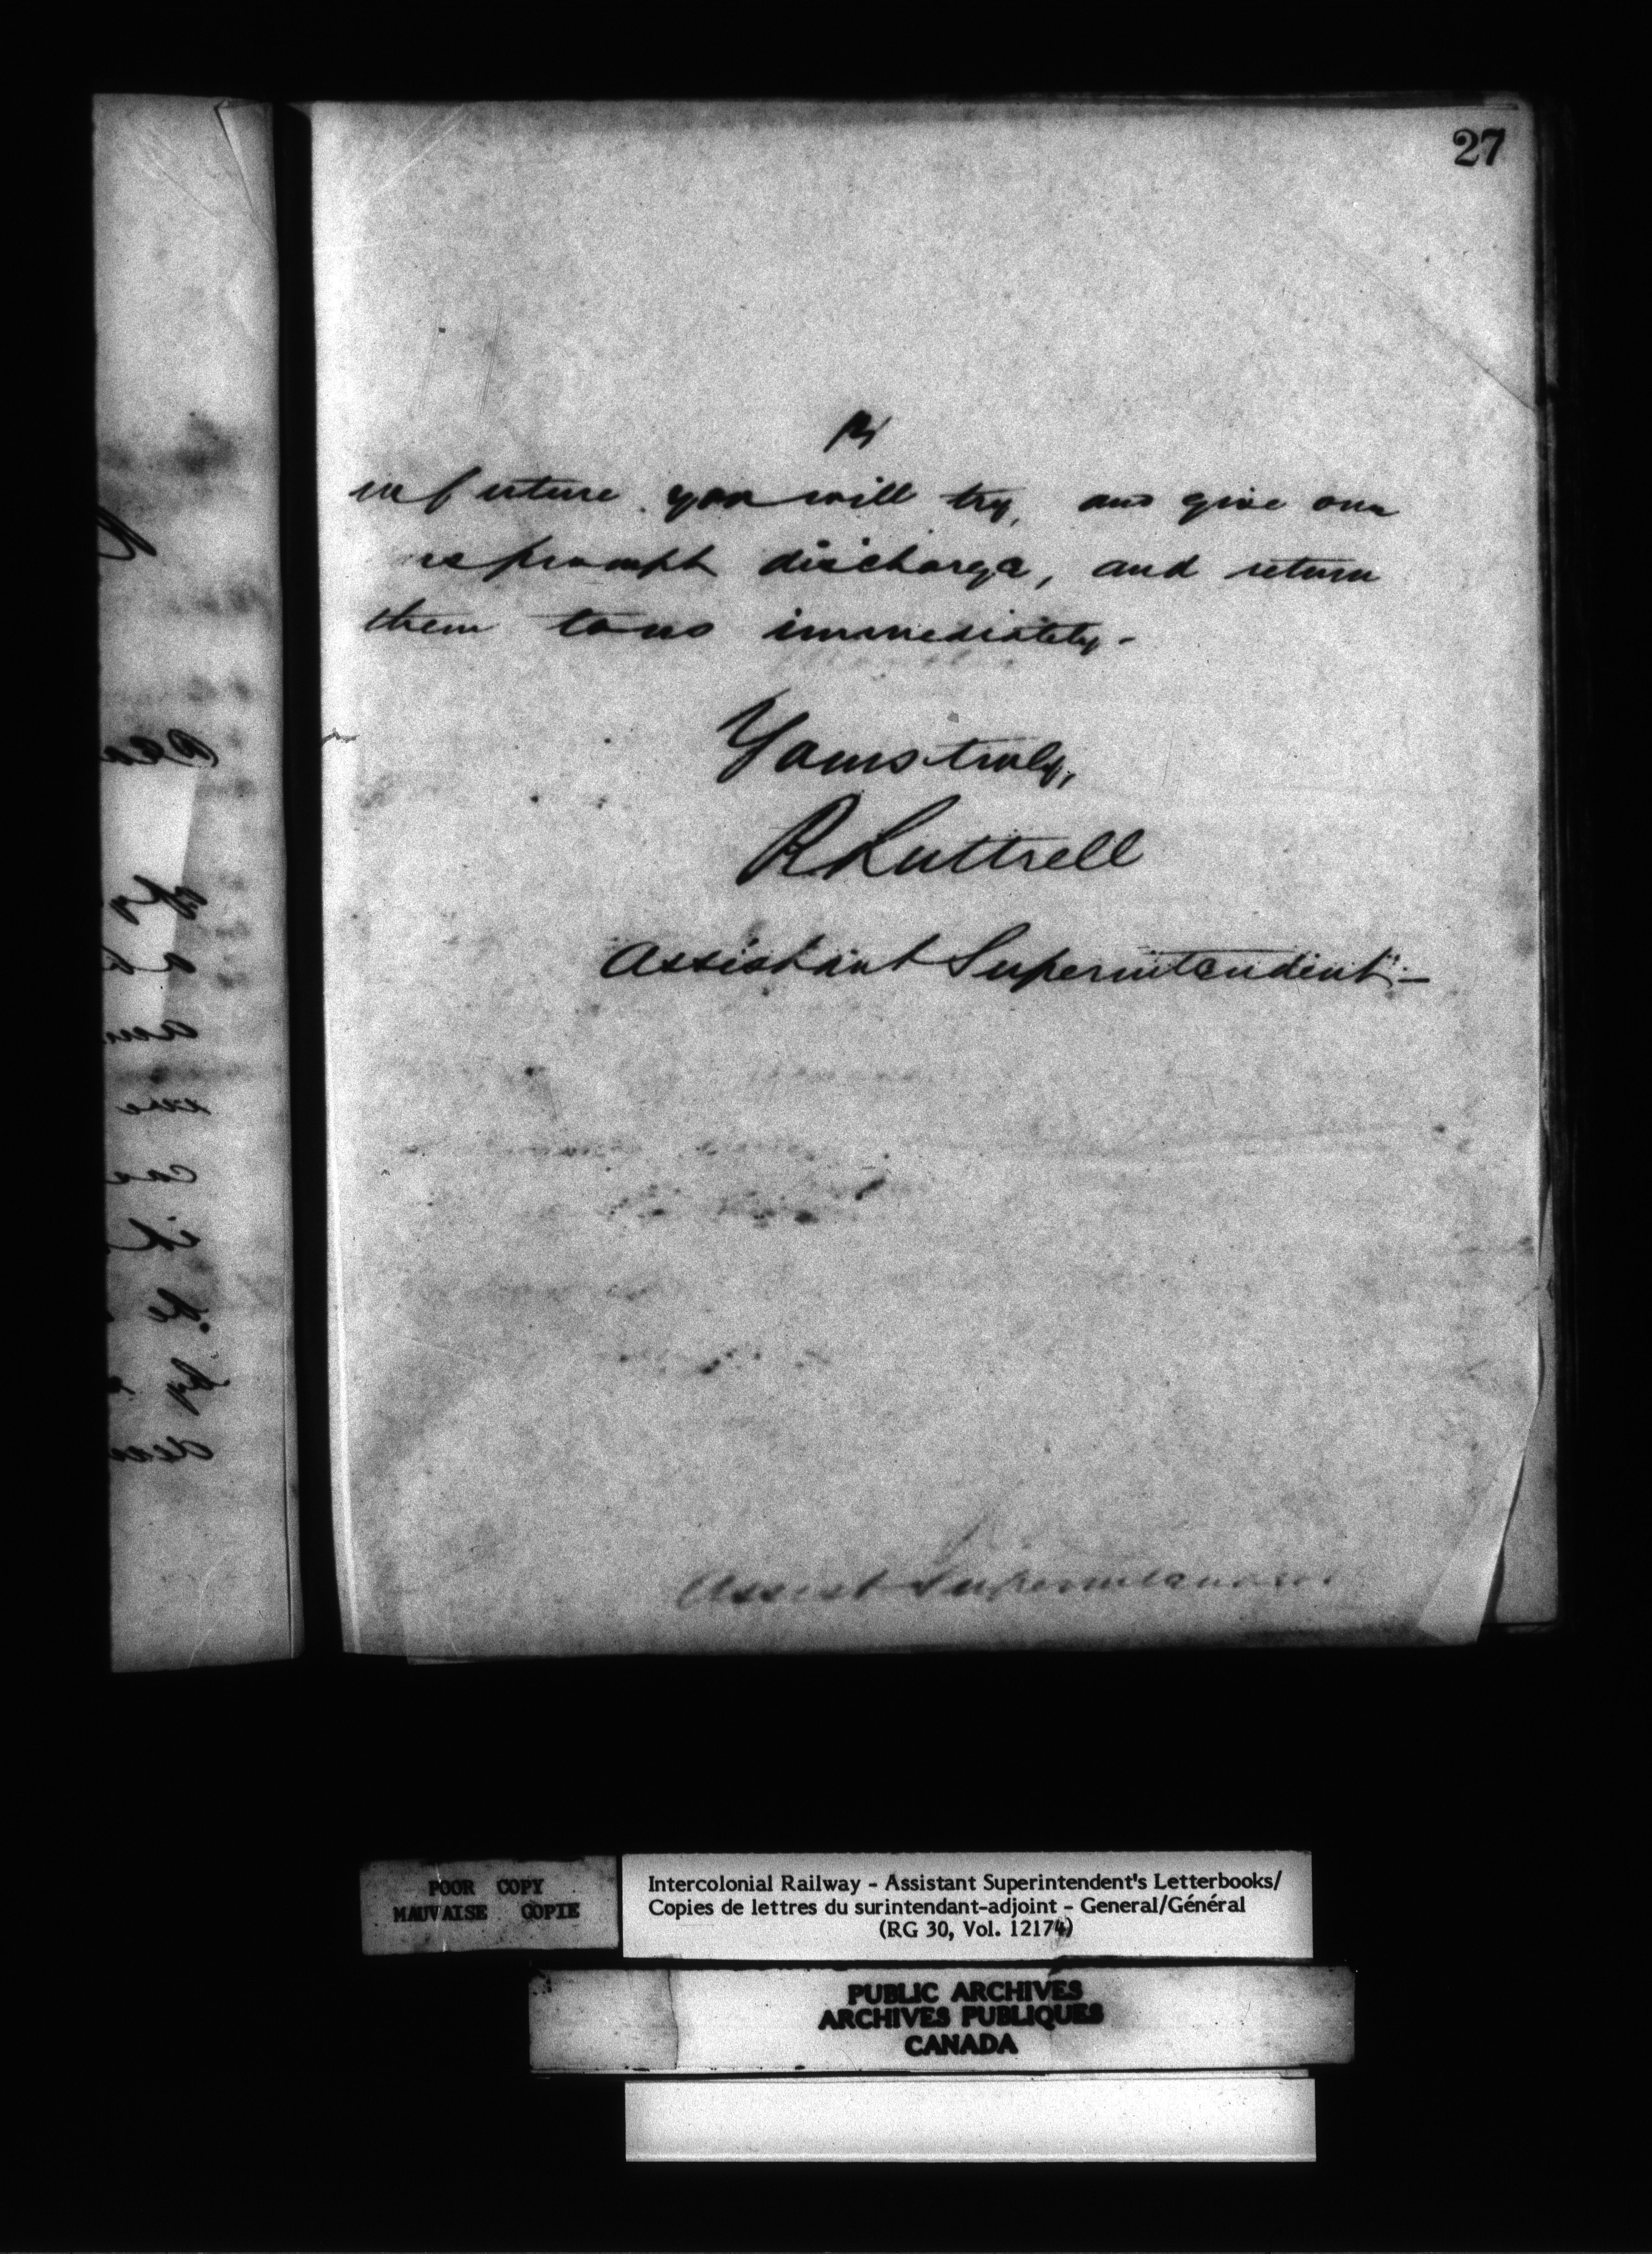 27
in future you will try, and give our
prompt discharge, and return
them to us immediately.
Yours truly,
R Luttrell
Assistant Superintendent.—
Assist Superintendent
POOR COPY
MAUVAISE COPIE
Intercolonial Railway - Assistant Superintendent's Letterbooks/
Copies de lettres du surintendant-adjoint - General/Général
(RG 30, Vol. 12174)
PUBLIC ARCHIVES
ARCHIVES PUBLIQUES
CANADA